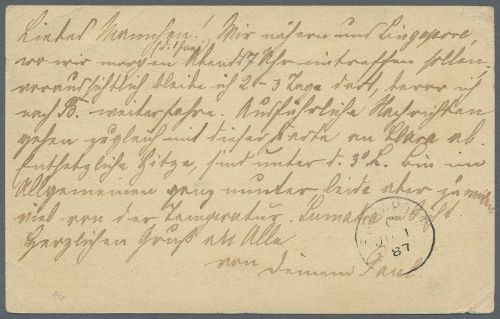 Liebes Mamachen! Wir nähern uns Singapore,
(d. 1 Juni)
wo wir morgen Abends 7 Uhr eintreffen sollen,
voraussichtlich bleibe ich 2-3 Tage dort, bevor ich
nach B. weiterfahre. Ausführliche Nachrichten
gehen zugleich mit dieser Karte an Clara ab.
Entsetzliche Hitze, sind unter d. 3° Bin im
Allgemeinen ganz munter, leide aber zuweilen
viel von der Temperatur. Sumatra in Sicht.
Herzlichen Gruß an Alle
von Deinem Paul.
SINGAPORE
JU 1
87